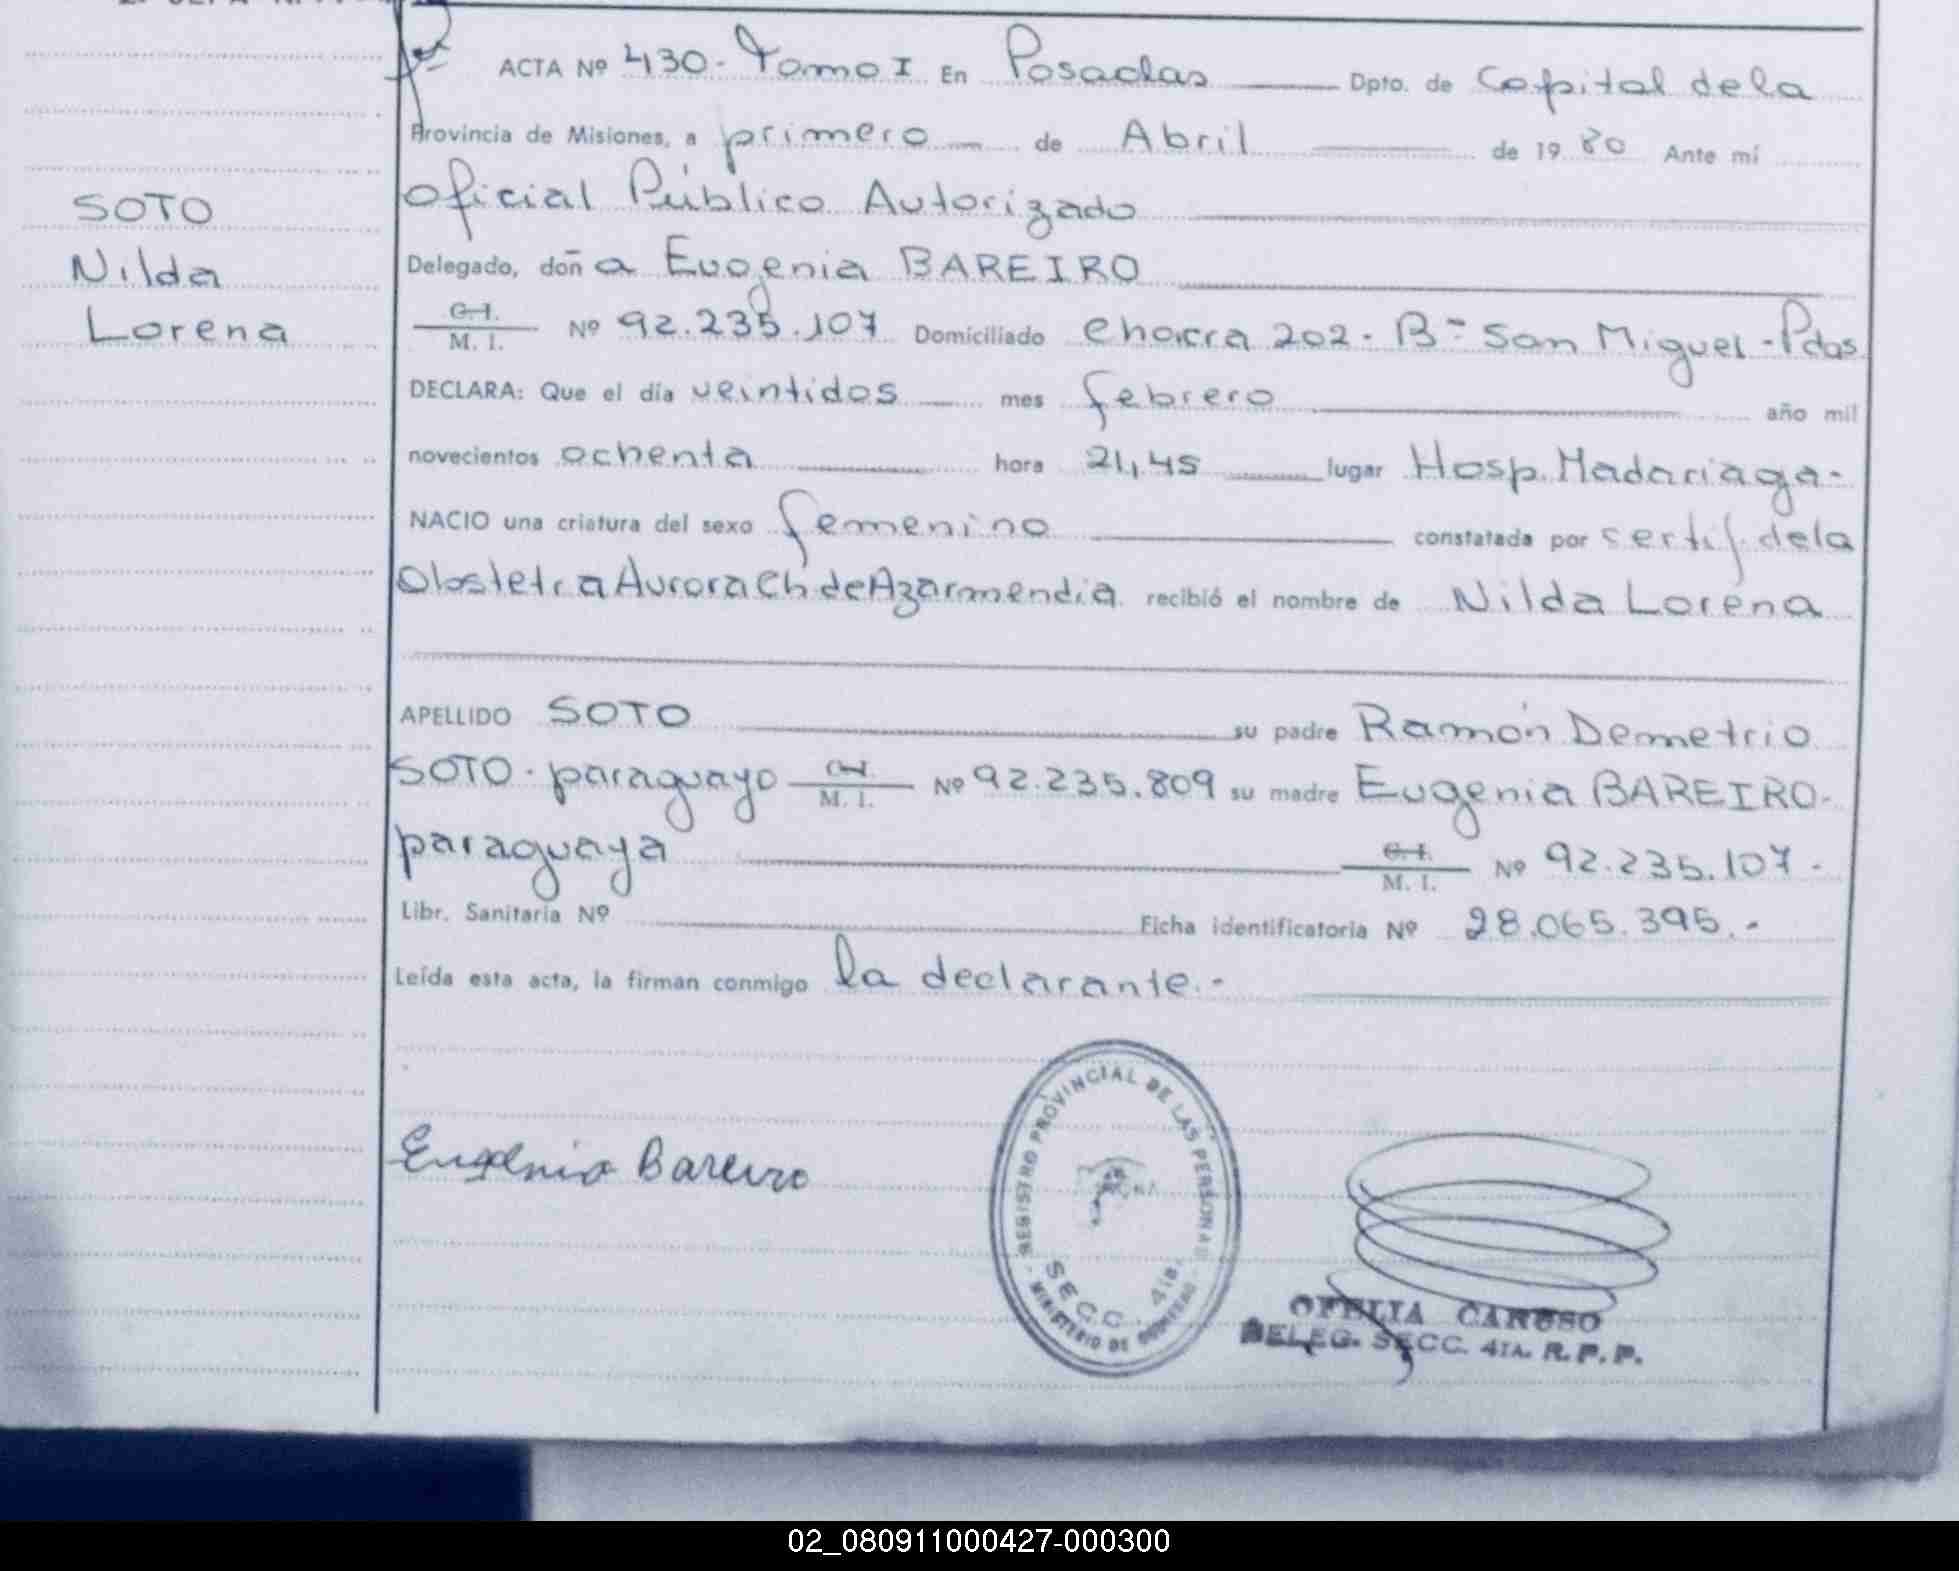 ACTA Nº 430 - Tomo I En Posadas Dpto. de Capital de la
Provincia de Misiones, a primero de Abril de 19 80 Ante mí
Oficial Público Autorizado
SOTO
Nilda
Lorena
Delegado, doña Eugenia BAREIRO
C. I.
M. I. Nº 92.235.107 Domiciliado Chacra 202 - Bº San Miguel - Pdas
DECLARA: Que el día veintidos mes febrero año mil
novecientos ochenta hora 21,45 lugar Hosp. Madariaga -
NACIO una criatura del sexo femenino constatada por sertif. de la
Obstetra Aurora Ch de Azarmendia recibió el nombre de Nilda Lorena
APELLIDO SOTO su padre Ramón Demetrio
SOTO - paraguayo C. I.
M. I. Nº 92.235.809 su madre Eugenia BAREIRO -
paraguaya C. I.
M. I. Nº 92.235.107 -
Libr. Sanitaria Nº Ficha identificatoria Nº 28.065.395. -
Leída esta acta, la firman conmigo la declarante. -
Eugenia Bareiro
REGISTRO PROVINCIAL DE LAS PERSONAS
SECC. 4ta.
MINISTERIO DE GOBIERNO
OFELIA CARUSO
DELEG. SECC. 4TA. R. P. P.
02_080911000427-000300